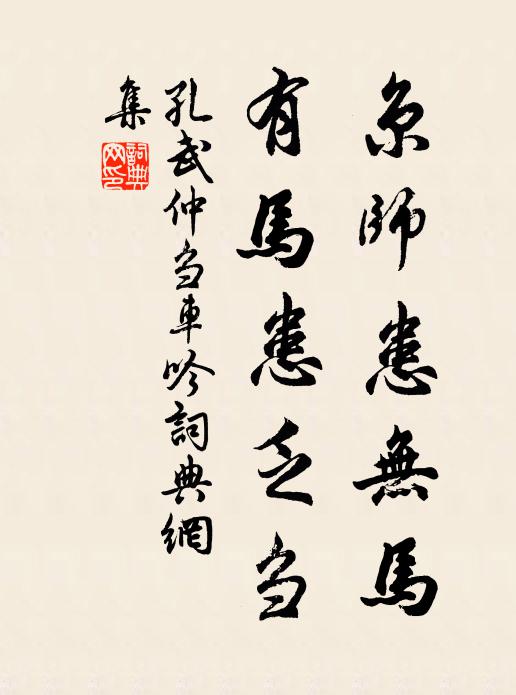 京師患無馬
有馬患乏刍
孔武仲刍車吟詞典網
集
詞典
网印